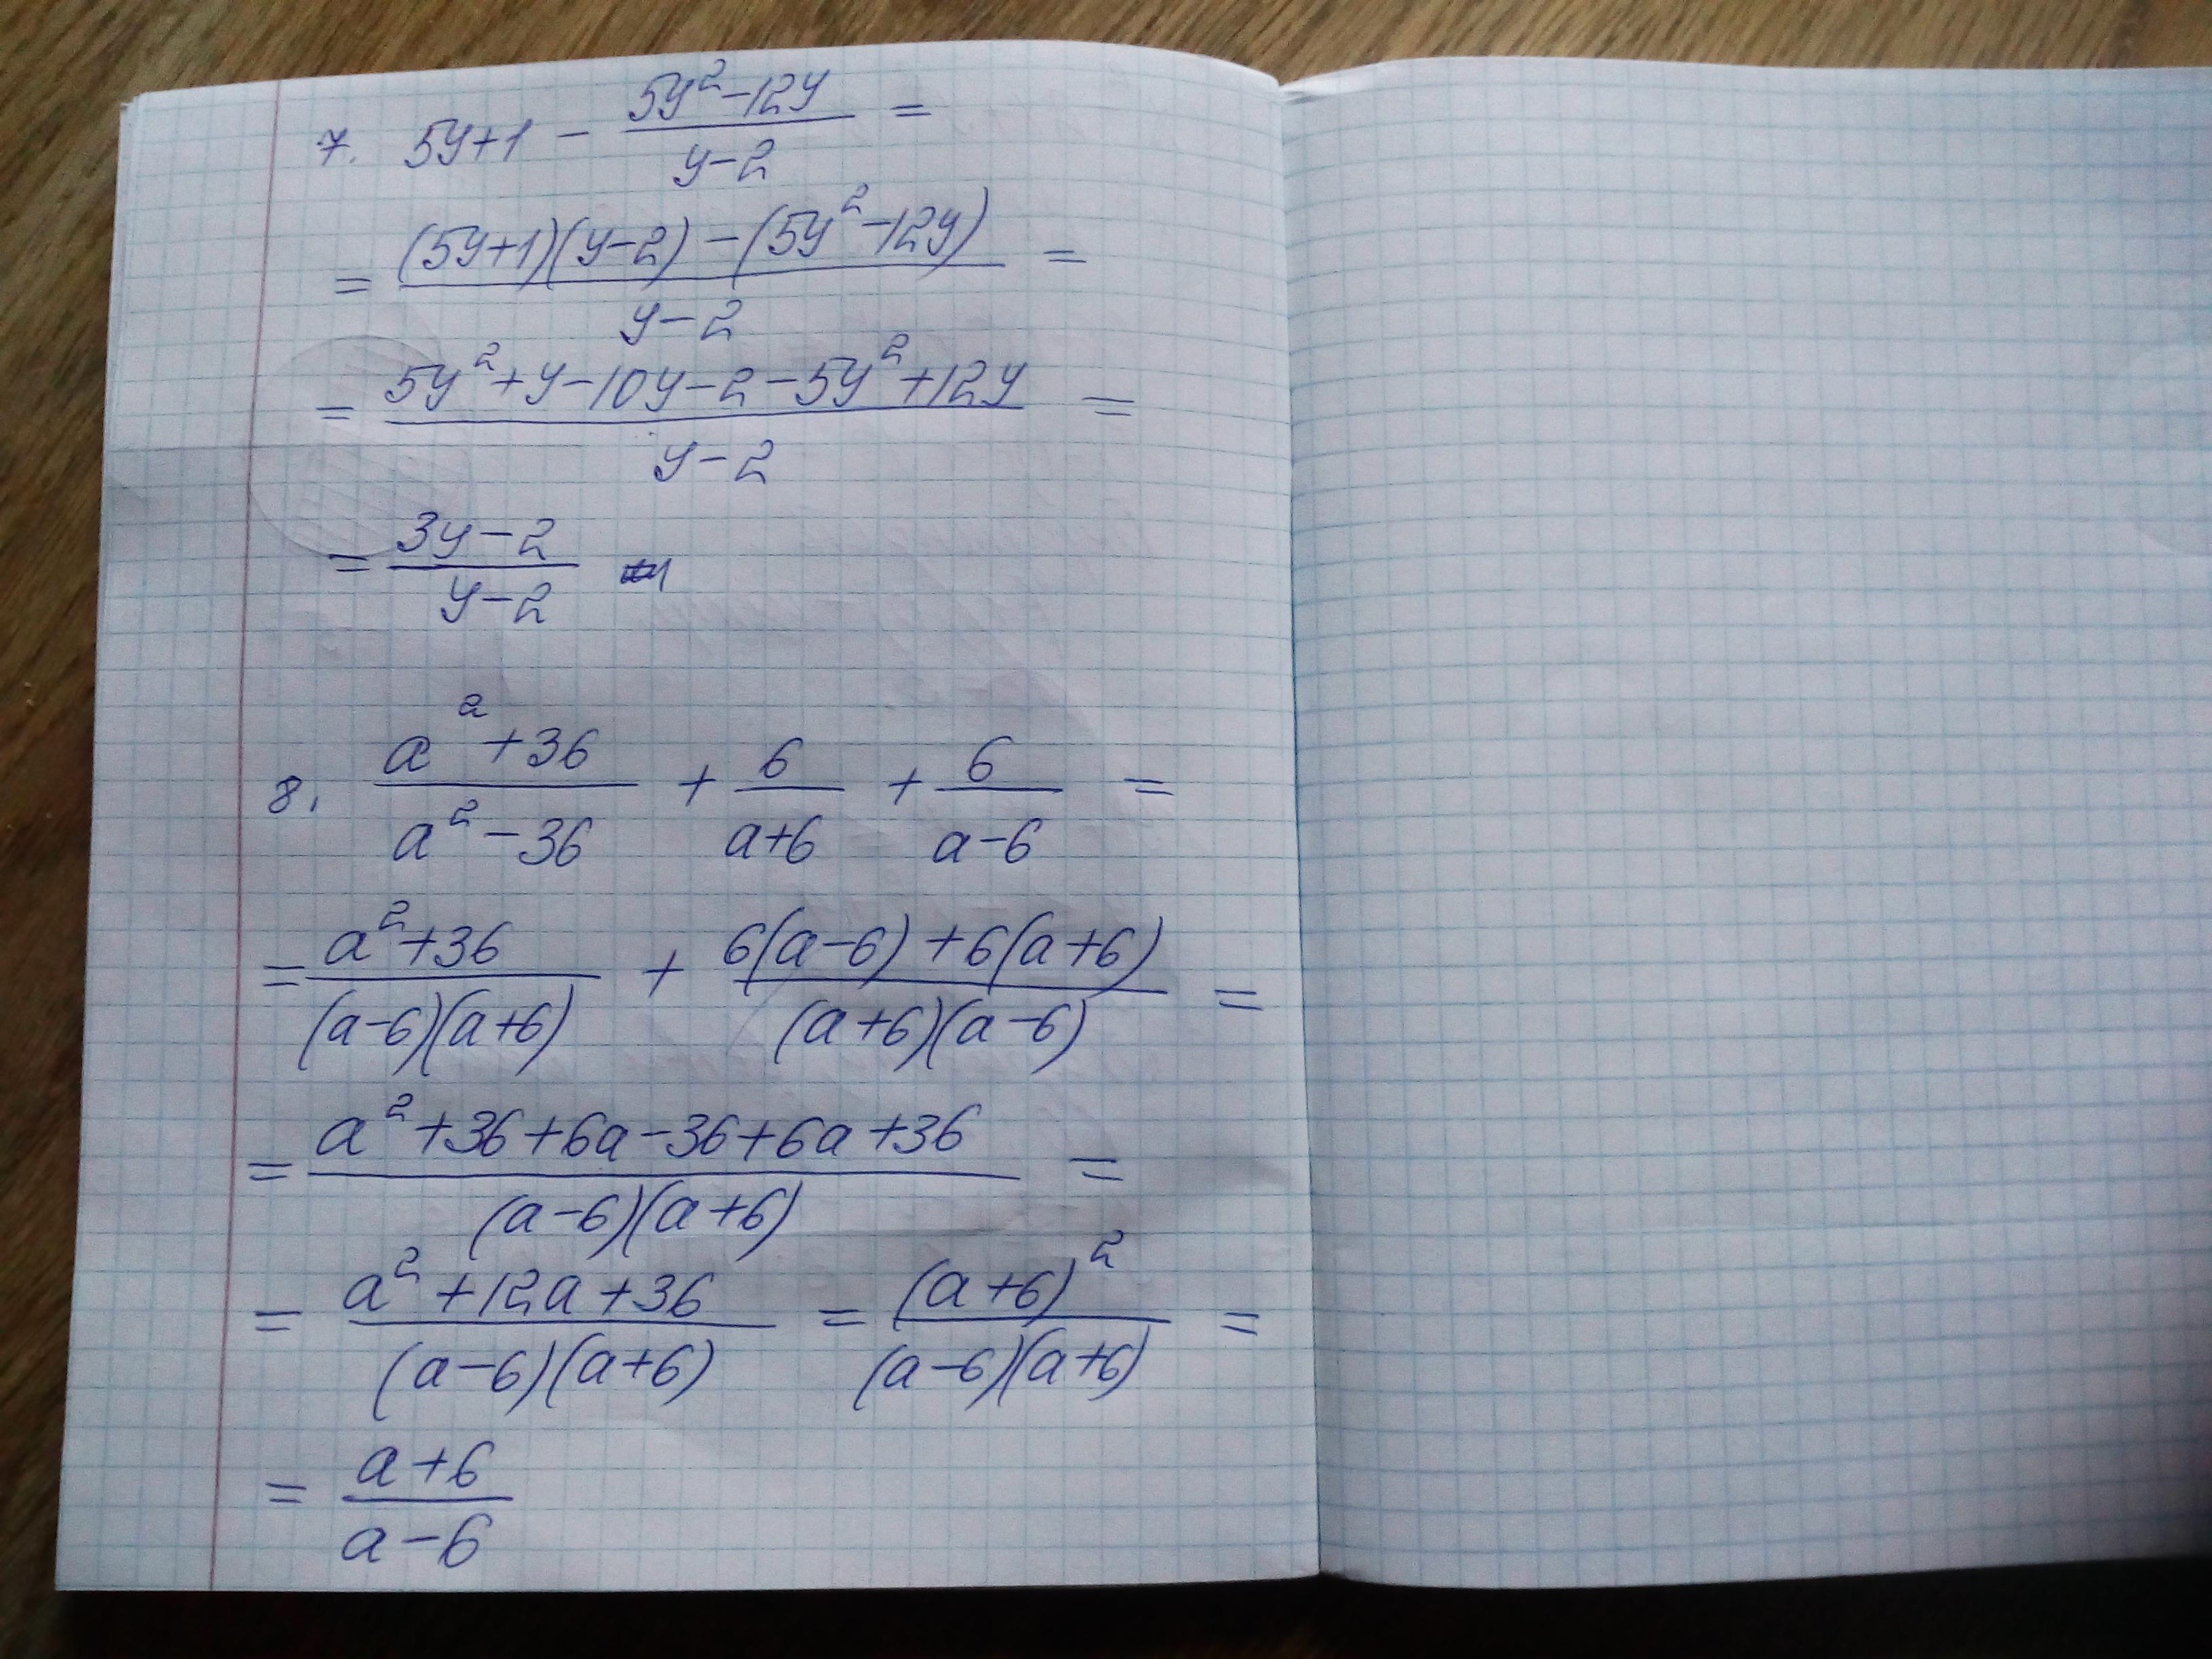 7. 5y+1 - (5y²-12y)/(y-2) =
= ((5y+1)(y-2) - (5y²-12y))/(y-2) =
= (5y²+y-10y-2-5y²+12y)/(y-2) =
= (3y-2)/(y-2)
8. (a²+36)/(a²-36) + 6/(a+6) + 6/(a-6) =
= (a²+36)/((a-6)(a+6)) + (6(a-6)+6(a+6))/((a+6)(a-6)) =
= (a²+36+6a-36+6a+36)/((a-6)(a+6)) =
= (a²+12a+36)/((a-6)(a+6)) = (a+6)²/((a-6)(a+6)) =
= (a+6)/(a-6)